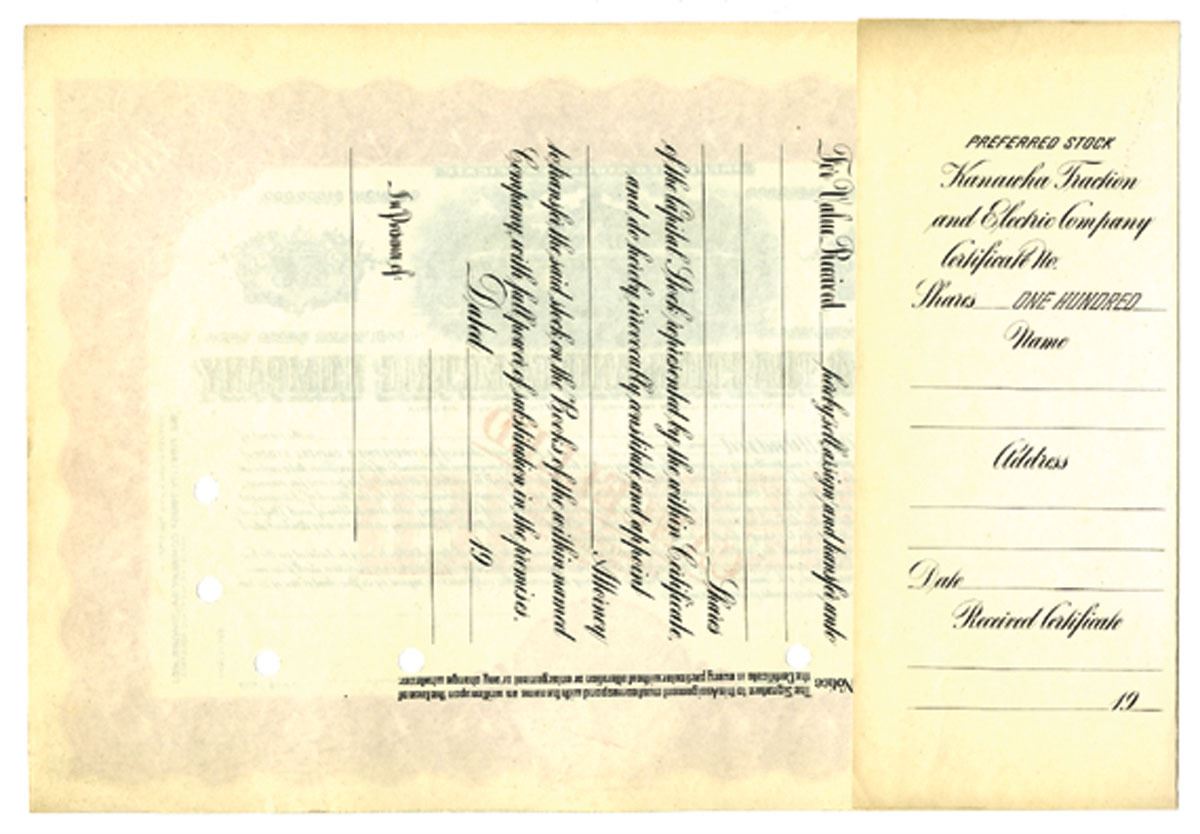 PREFERRED STOCK
Kanawha Traction
and Electric Company
Certificate No.
Shares ONE HUNDRED
Name
Address
Date
Received Certificate
19
For Value Received hereby sell assign and transfer unto
Shares
of the Capital Stock represented by the within Certificate,
and do hereby irrevocably constitute and appoint
Attorney
to transfer the said stock on the Books of the within named
Company, with full power of substitution in the premises.
Dated 19
In Presence of
Notice: The Signature to this Assignment must correspond with the name as written upon the face of
the Certificate in every particular without alteration or enlargement or any change whatever.
TRACTION AND ELECTRIC COMPANY